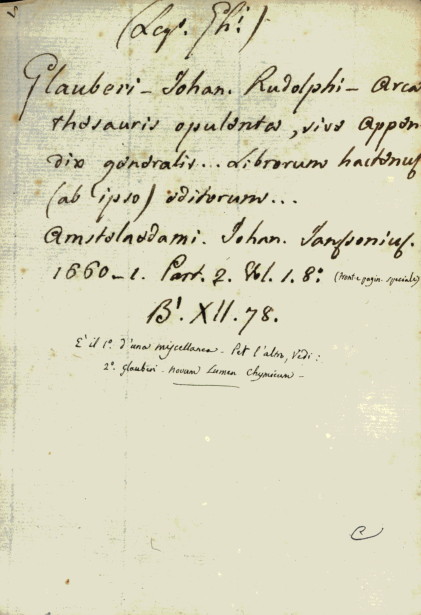 (Leg. Ghi.)
Glauberi - Johan. Rudolphi - Arca
thesauris opulenta, sive Appen
dix generalis... Librorum hactenus
(ab ipso) editorum...
Amstelaedami. Johan. Janssonius.
1660-1. Part. 2. Vol. 1. 8°. (front. e pagin. speciale)
B'. XII. 78.
E' il 1°. d'una miscellanea - Pel l'altro, Vedi:
2°. Glauberi - novum Lumen Chymicum -